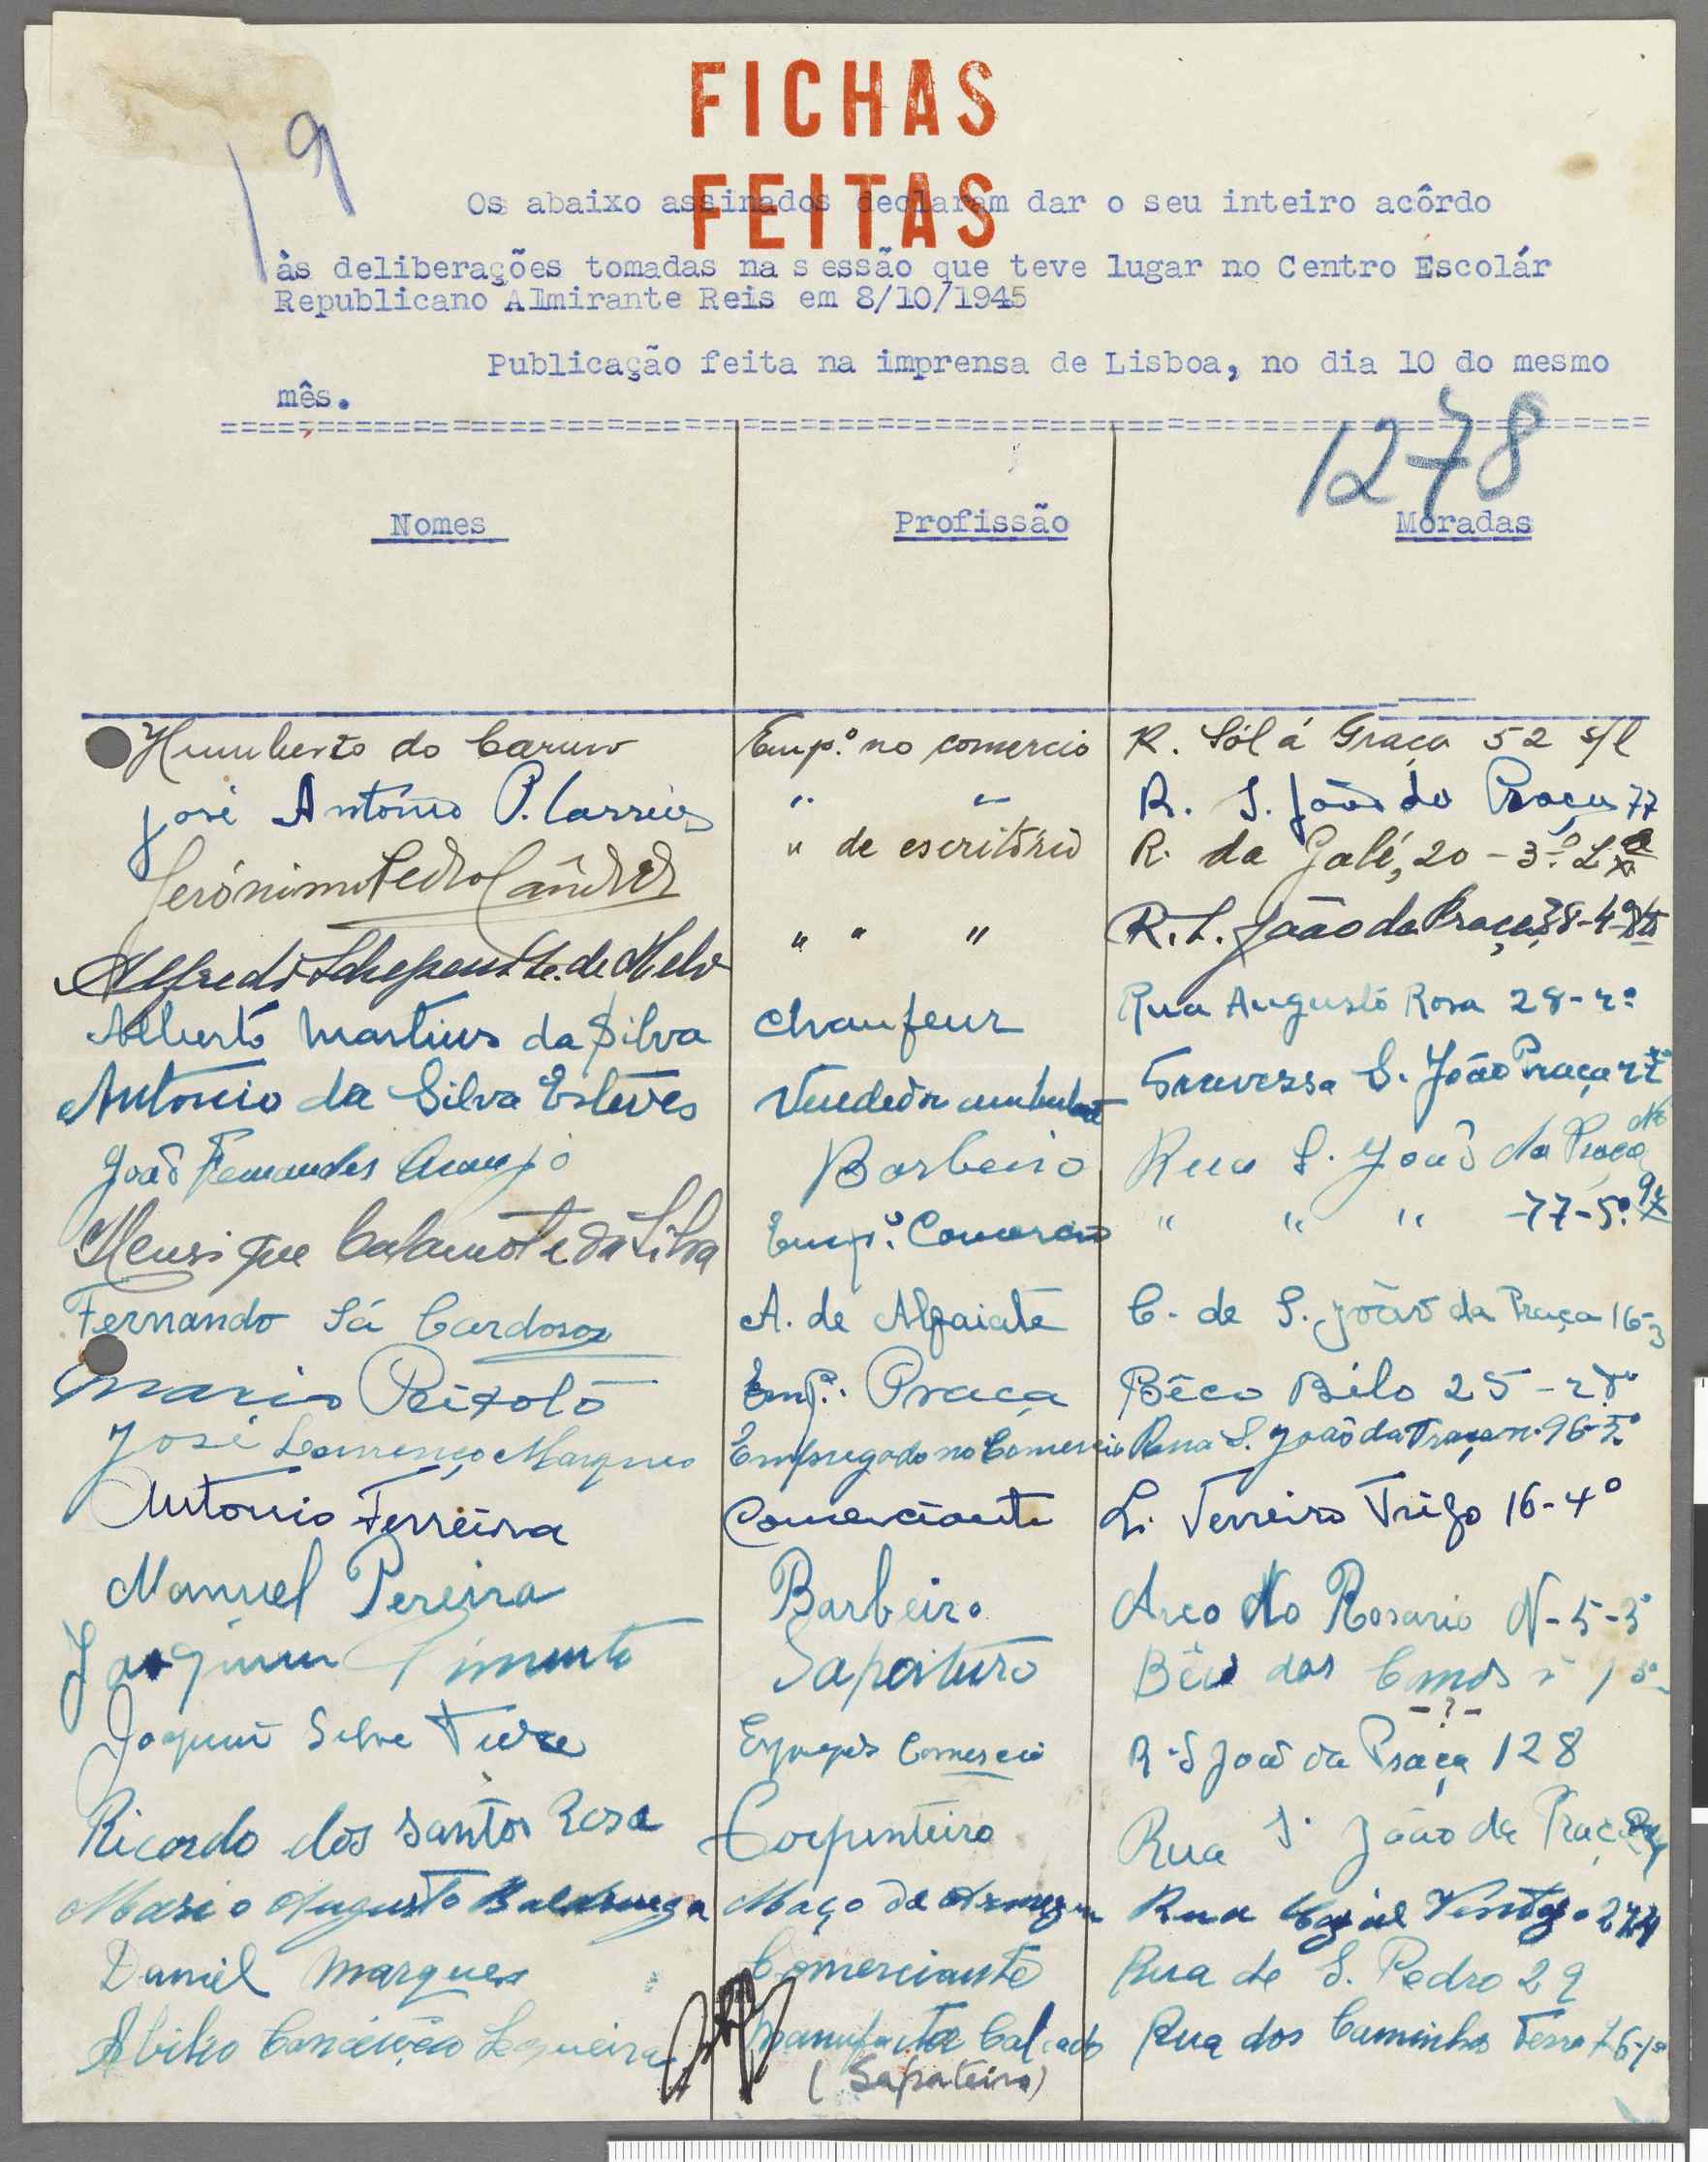 FICHAS
FEITAS
19
Os abaixo assinados declaram dar o seu inteiro acôrdo
às deliberações tomadas na sessão que teve lugar no Centro Escolár
Republicano Almirante Reis em 8/10/1945
Publicação feita na imprensa de Lisboa, no dia 10 do mesmo
mês.
1278
Nomes Profissão Moradas
Humberto do Carmo Emp.º no comercio R. Sól á Graça 52 s/l
José António P. " " R. S. João da Praça 77
Jerónimo Pedro " de escritório R. da Galé, 20 - 3.º
Alfredo de Melo " " " R. S. João da Praça 38-4º
Alberto Martins da Silva Chaufeur Rua Augusto Rosa 28-2º
Antonio da Silva Esteves Vendedor ambulante Travessa S. João Praça
João Fernandes Araujo Barbeiro Rua S. João da Praça
Henrique Calamote da Silva Emp.º Comercio " " " 77-5.º
Fernando Sá Cardoso A. de Alfaiate C. de S. João da Praça 16-3
Mario Peixoto Emp. Praça Bêco Bélo 25-
José Lourenço Marques Empregado no Comercio Rua S. João da Praça n. 96-
Antonio Ferreira Comerciante L. Terreiro Trigo 16-4º
Manuel Pereira Barbeiro Arco do Rosario N-5-3º
Joaquim Pimenta Sapateiro Bêco dos
-?-
Joaquim Silva Comercio R. S João da Praça 128
Ricardo dos Santos Rosa Carpinteiro Rua S. João da Praça
Mario Augusto Moço de Armazem Rua
Daniel Marques Comerciante Rua de S. Pedro 29
Abilio Conceição Manufactor Calçado Rua dos Caminhos Ferro
(Sapateiro)